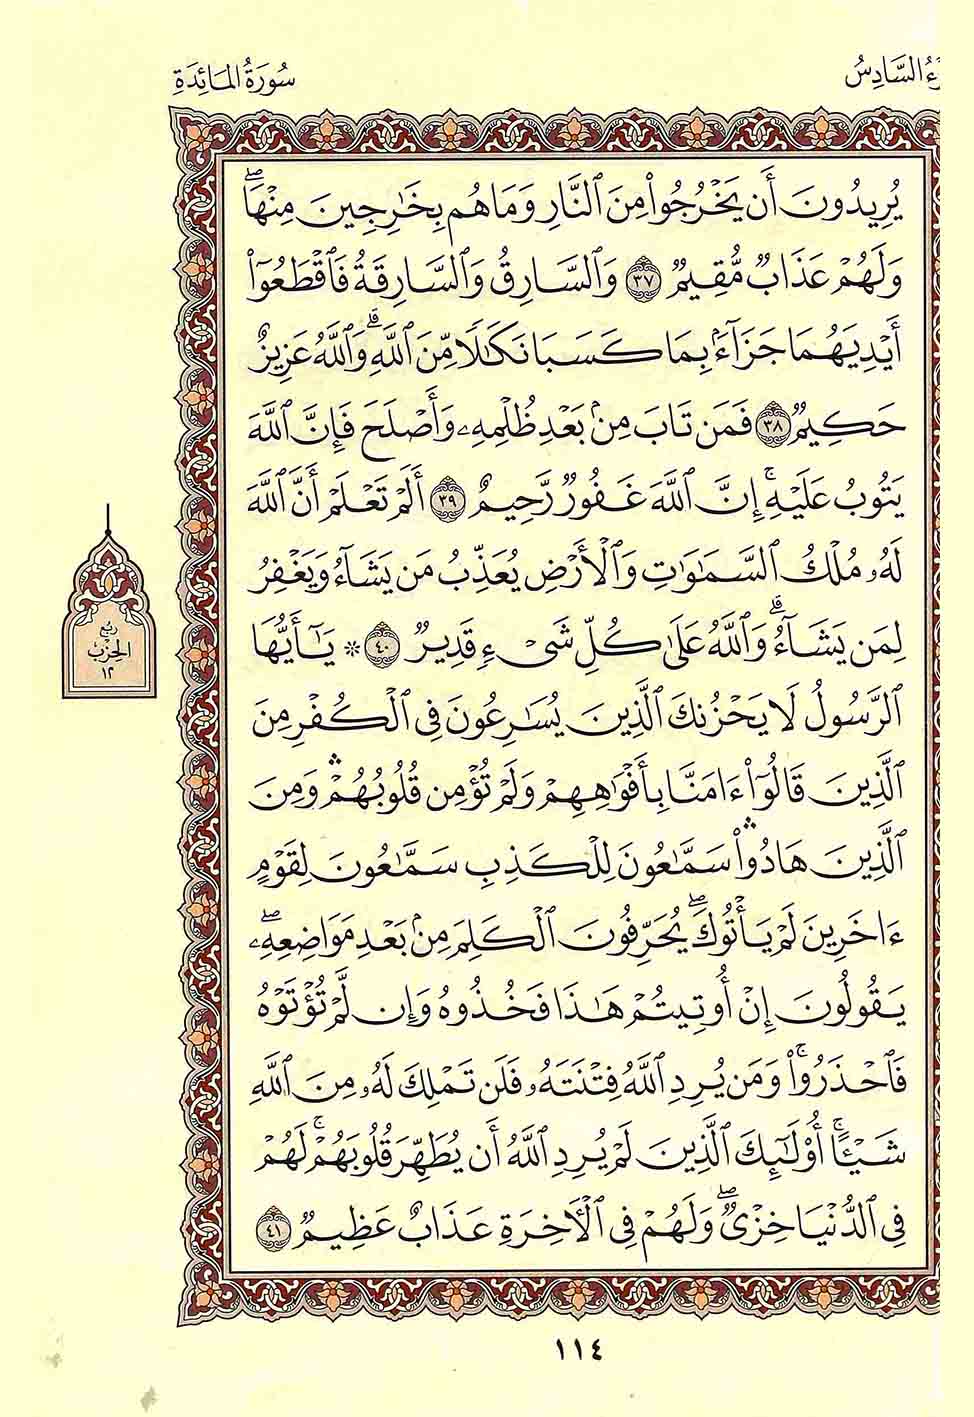 سُورَةُ المَائِدَةِ
السَّادِسُ
يُرِيدُونَ أَن يَخْرُجُوا۟ مِنَ ٱلنَّارِ وَمَا هُم بِخَـٰرِجِينَ مِنْهَا ۖ
وَلَهُمْ عَذَابٌ مُّقِيمٌ ٣٧ وَٱلسَّارِقُ وَٱلسَّارِقَةُ فَٱقْطَعُوٓا۟
أَيْدِيَهُمَا جَزَآءًۢ بِمَا كَسَبَا نَكَـٰلًا مِّنَ ٱللَّهِ ۗ وَٱللَّهُ عَزِيزٌ
حَكِيمٌ ٣٨ فَمَن تَابَ مِنۢ بَعْدِ ظُلْمِهِۦ وَأَصْلَحَ فَإِنَّ ٱللَّهَ
يَتُوبُ عَلَيْهِ ۚ إِنَّ ٱللَّهَ غَفُورٌ رَّحِيمٌ ٣٩ أَلَمْ تَعْلَمْ أَنَّ ٱللَّهَ
لَهُۥ مُلْكُ ٱلسَّمَـٰوَٰتِ وَٱلْأَرْضِ يُعَذِّبُ مَن يَشَآءُ وَيَغْفِرُ
لِمَن يَشَآءُ ۗ وَٱللَّهُ عَلَىٰ كُلِّ شَىْءٍ قَدِيرٌ ٤٠ * يَـٰٓأَيُّهَا
ٱلرَّسُولُ لَا يَحْزُنكَ ٱلَّذِينَ يُسَـٰرِعُونَ فِى ٱلْكُفْرِ مِنَ
ٱلَّذِينَ قَالُوٓا۟ ءَامَنَّا بِأَفْوَٰهِهِمْ وَلَمْ تُؤْمِن قُلُوبُهُمْ ۛ وَمِنَ
ٱلَّذِينَ هَادُوا۟ ۛ سَمَّـٰعُونَ لِلْكَذِبِ سَمَّـٰعُونَ لِقَوْمٍ
ءَاخَرِينَ لَمْ يَأْتُوكَ ۖ يُحَرِّفُونَ ٱلْكَلِمَ مِنۢ بَعْدِ مَوَاضِعِهِۦ ۖ
يَقُولُونَ إِنْ أُوتِيتُمْ هَـٰذَا فَخُذُوهُ وَإِن لَّمْ تُؤْتَوْهُ
فَٱحْذَرُوا۟ ۚ وَمَن يُرِدِ ٱللَّهُ فِتْنَتَهُۥ فَلَن تَمْلِكَ لَهُۥ مِنَ ٱللَّهِ
شَيْـًٔا ۚ أُو۟لَـٰٓئِكَ ٱلَّذِينَ لَمْ يُرِدِ ٱللَّهُ أَن يُطَهِّرَ قُلُوبَهُمْ ۚ لَهُمْ
فِى ٱلدُّنْيَا خِزْىٌ ۖ وَلَهُمْ فِى ٱلْـَٔاخِرَةِ عَذَابٌ عَظِيمٌ ٤١
رُبع
الحِزْب
١٢
١١٤